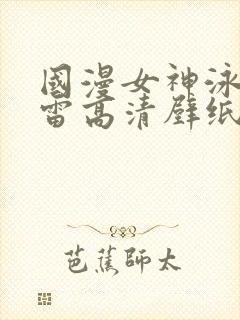 國漫女神泳
雷高清壁纸
芭蕉師太